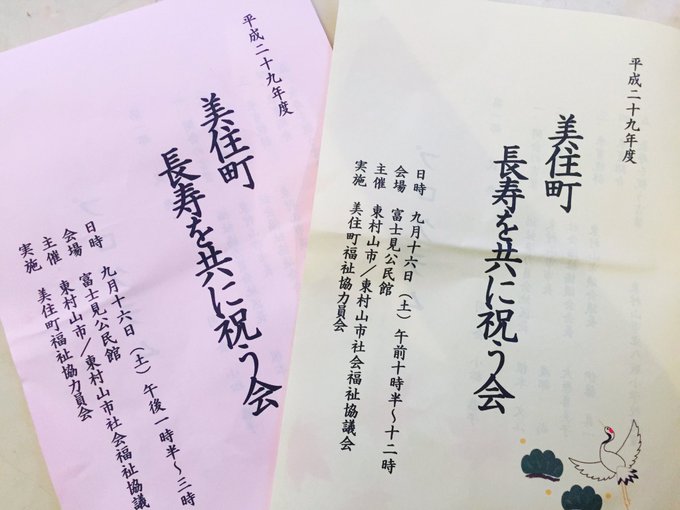 平成二十九年度
美住町
長寿を共に祝う会
日時 九月十六日(土)午後一時半~三時
会場 富士見公民館
主催 東村山市/東村山市社会福祉協議
実施 美住町福祉協力員会
平成二十九年度
美住町
長寿を共に祝う会
日時 九月十六日(土)午前十時半~十二時
会場 富士見公民館
主催 東村山市/東村山市社会福祉協議会
実施 美住町福祉協力員会